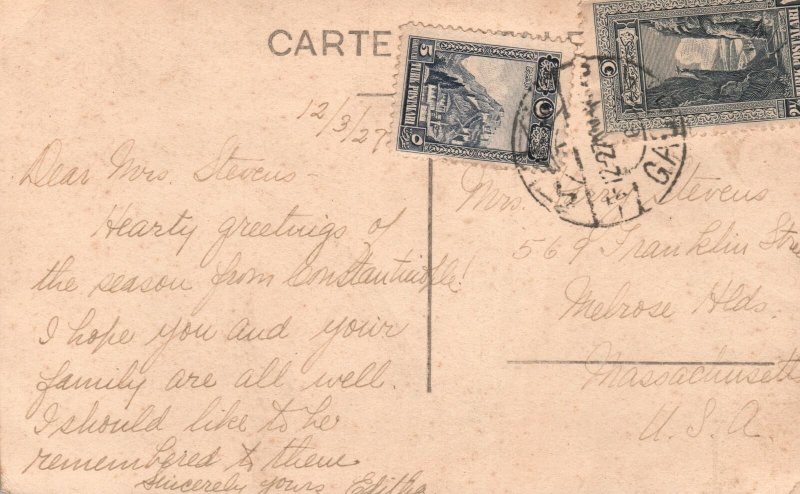 CARTE
12/3/27
Dear Mrs. Stevens-
Hearty greetings of
the season from Constantinople!
I hope you and your
family are all well.
I should like to be
remembered to them
Sincerely yours - Editha
Mrs. Stevens
569 Franklin Stre
Melrose Hlds.
Massachusetts
U. S. A
5
TURK POSTALARI
٥
GAL